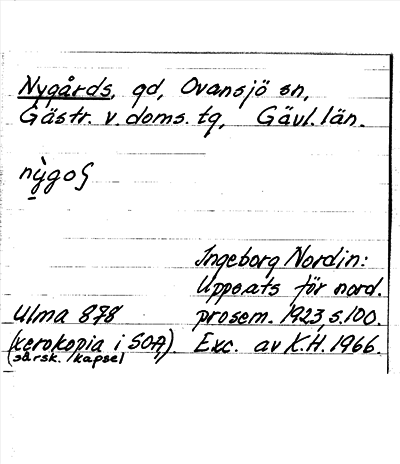 Nygårds, gd, Ovansjö sn,
Gästr. v. doms. tg, Gävl. län.
nỳgoꞔ
Ingeborg Nordin:
Uppsats för nord.
Ulma 878 prosem. 1923, s. 100.
(xerokopia i SOA,) Exc. av K.H. 1966.
(särsk. kapsel